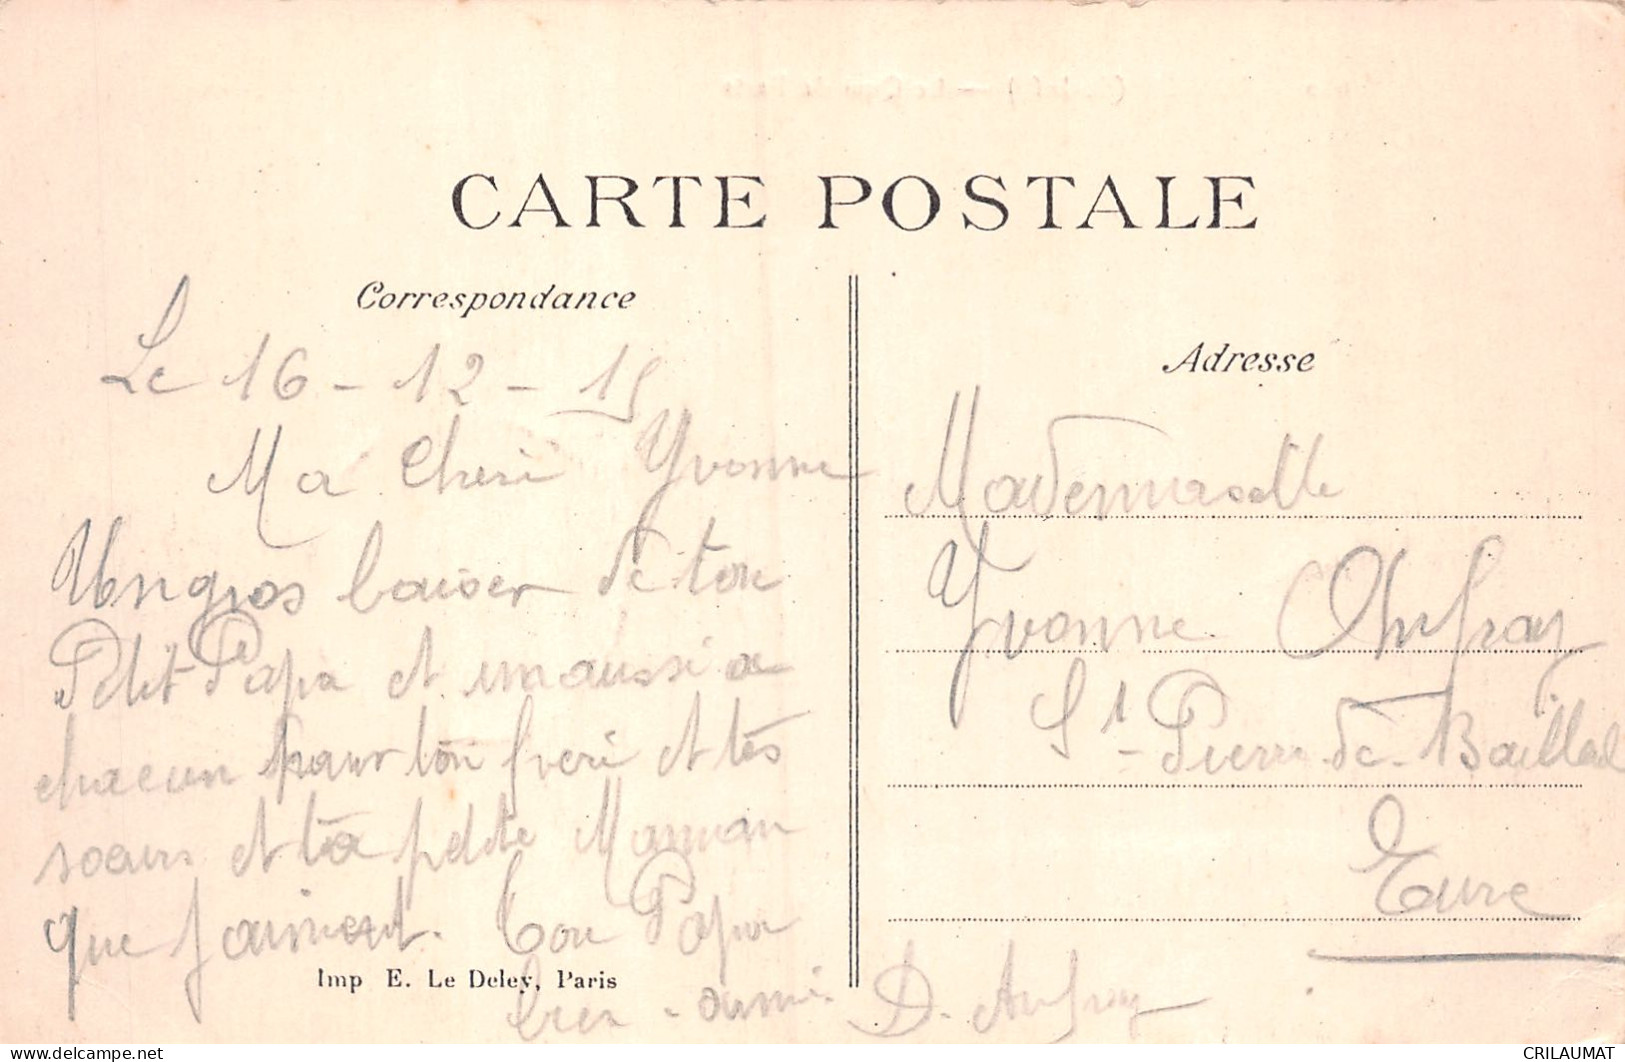 CARTE POSTALE
Correspondance
Le 16 - 12 - 15
Ma Cheri Yvonne
Un gros baiser de ton
Petit Papa et un aussi a
chacun pour ton freri et tes
soeurs et ta petite Maman
que j'aiment. Ton Papa
bien - aimé. D. Aufray
Imp E. Le Deley, Paris
Adresse
Mademoiselle
Yvonne Aufray
St - Pierre de Bailleul
Eure
CRILAUMAT